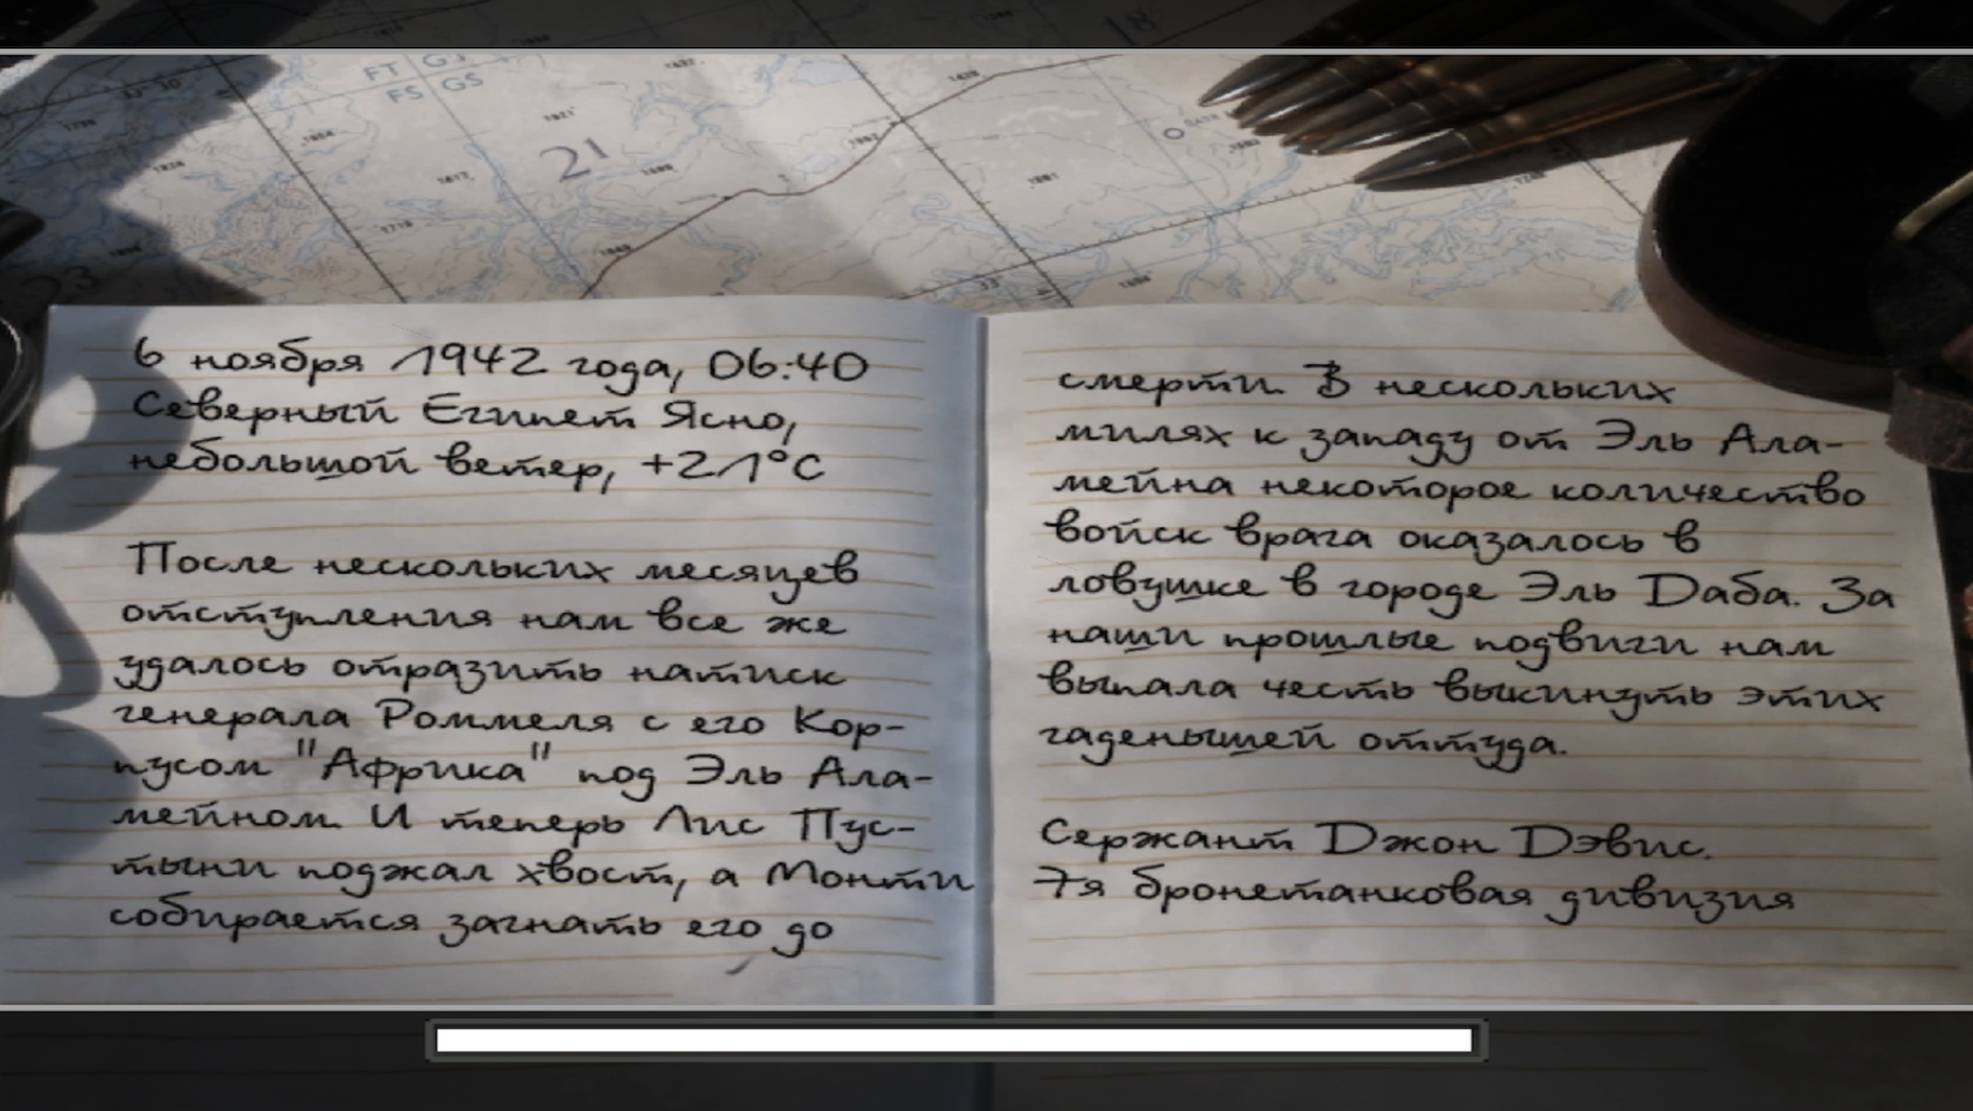 18
FT
GS
FS GS
21
23
6 ноября 1942 года, 06:40
Северный Египет Ясно,
небольшой ветер, +21°С
После нескольких месяцев
отступления нам все же
удалось отразить натиск
генерала Роммеля с его Кор-
пусом "Африка" под Эль Ала-
мейном. И теперь Лис Пус-
тыни поджал хвост, а Монти
собирается загнать его до
смерти. В нескольких
милях к западу от Эль Ала-
мейна некоторое количество
войск врага оказалось в
ловушке в городе Эль Даба. За
наши прошлые подвиги нам
выпала честь выкинуть этих
гаденышей оттуда.
Сержант Джон Дэвис.
7я бронетанковая дивизия